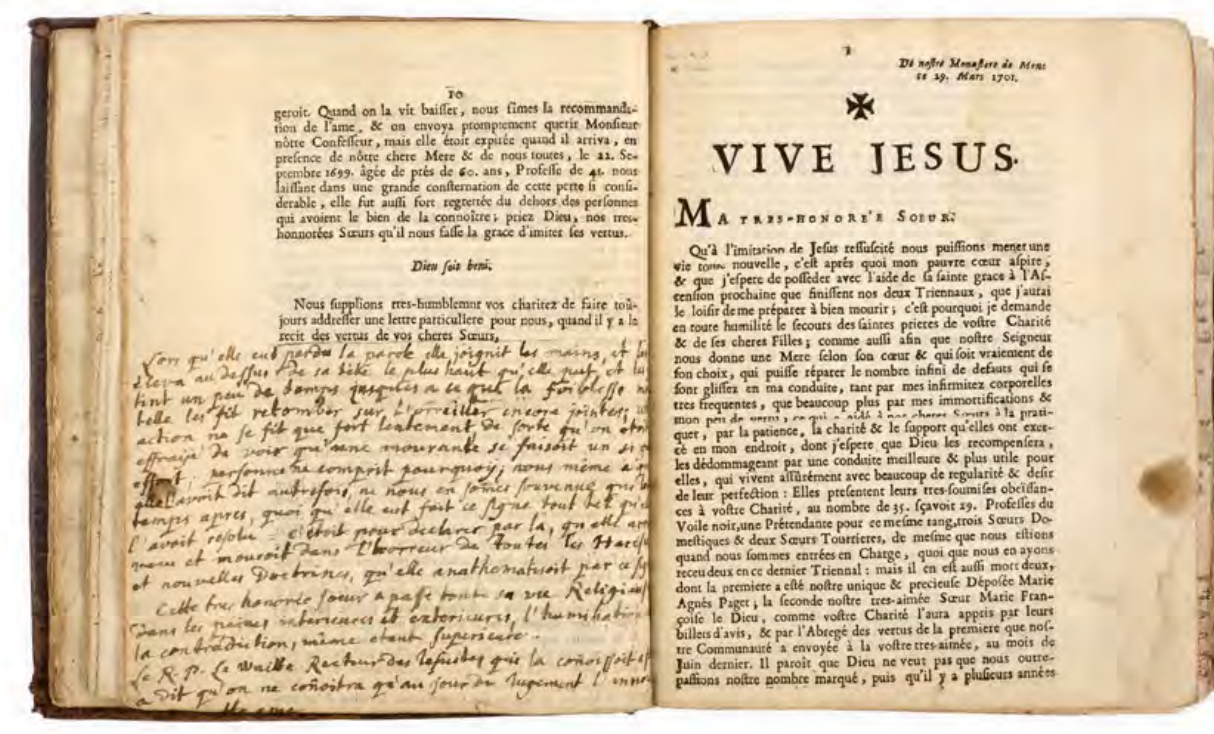 10
geroit. Quand on la vit baiſſer, nous fîmes la recommanda-
tion de l'ame, & on envoya promptement querir Monſieur
nôtre Confeſſeur, mais elle étoit expirée quand il arriva, en
preſence de nôtre chere Mere & de nous toutes, le 22. Se-
ptembre 1699. âgée de prés de 60. ans, Profeſſe de 41. nous
laiſſant dans une grande conſternation de cette perte ſi conſi-
derable, elle fut auſſi fort regrettée du dehors des perſonnes
qui avoient le bien de la connoître; priez Dieu, nos tres-
honnorées Sœurs qu'il nous faſſe la grace d'imiter ſes vertus.
Dieu ſoit beni.
Nous ſupplions tres-humblemnt vos charitez de faire toû-
jours addreſſer une lettre particuliere pour nous, quand il y a le
recit des vertus de vos cheres Sœurs,
Lors qu'elle eut perdu la parole elle joignit les mains, et les
éleva au deſſus de sa tête le plus haut qu'elle put, et les
tint un peu de temps jusques a ce que la foiblesse
les fit retomber sur l'orreiller encore jointes;
action ne se fit que fort lentement de sorte qu'on etoit
effraije de voir qu'une mourante se faisoit un si
effort personne ne comprit pourquoy; nous même a
qu'elle l'avoit dit autrefois, ne nous en somes souvenue que
temps apres, quoi qu'elle eut fait ce signe tout tel qu'
l'avoit resolu c'etoit pour declarer par la, qu'elle
et mouroit dans l'horreur de toutes les
et nouvelles Doctrines, qu'elle anathematisoit par ce
Cette tres honorée soeur a passé toute sa vie Religieuse
dans les peines interieures et exterieures, l'humiliation
la contradiction, même etant superieure.
Le R. P. Le Recteur des Jesuites qui la
a dit qu'on ne conoitra qu'au jour du Jugement
1
De noſtre Monaſtere de
ce 29. Mars 1701.
VIVE JESUS.
MA TRES-HONORE'E SOEUR.
Qu'à l'imitation de Jeſus reſſuſcité nous puiſſions mener une
vie toute nouvelle, c'eſt aprés quoi mon pauvre cœur aſpire,
& que j'eſpere de poſſeder avec l'aide de ſa ſainte grace à l'Aſ-
cenſion prochaine que finiſſent nos deux Triennaux, que j'aurai
le loiſir de me préparer à bien mourir; c'eſt pourquoi je demande
en toute humilité le ſecours des ſaintes prieres de voſtre Charité
& de ſes cheres Filles; comme auſſi afin que noſtre Seigneur
nous donne une Mere ſelon ſon cœur & qui ſoit vraiement de
ſon choix, qui puiſſe réparer le nombre infini de defauts qui ſe
ſont gliſſez en ma conduite, tant par mes infirmitez corporelles
tres frequentes, que beaucoup plus par mes immortifications &
mon peu de vertu, ce qui a aidé à nos cheres Sœurs à la prati-
quer, par la patience, la charité & le ſupport qu'elles ont exer-
cé en mon endroit, dont j'eſpere que Dieu les recompenſera,
les dédommageant par une conduite meilleure & plus utile pour
elles, qui vivent aſſûrément avec beaucoup de regularité & deſir
de leur perfection: Elles preſentent leurs tres-ſoumiſes obeïſſan-
ces à voſtre Charité, au nombre de 35. ſçavoir 29. Profeſſes du
Voile noir, une Prétendante pour ce meſme rang, trois Sœurs Do-
meſtiques & deux Sœurs Tourrieres, de meſme que nous eſtions
quand nous ſommes entrées en Charge, quoi que nous en ayons
receu deux en ce dernier Triennal: mais il en eſt auſſi mort deux,
dont la premiere a eſté noſtre unique & precieuſe Dépoſée Marie
Agnés Paget; la ſeconde noſtre tres-aimée Sœur Marie Fran-
çoiſe le Dieu, comme voſtre Charité l'aura appris par leurs
billets d'avis, & par l'Abregé des vertus de la premiere que noſ-
tre Communauté a envoyée à la voſtre tres-aimée, au mois de
Juin dernier. Il paroît que Dieu ne veut pas que nous outre-
paſſions noſtre nombre marqué, puis qu'il y a pluſieurs années